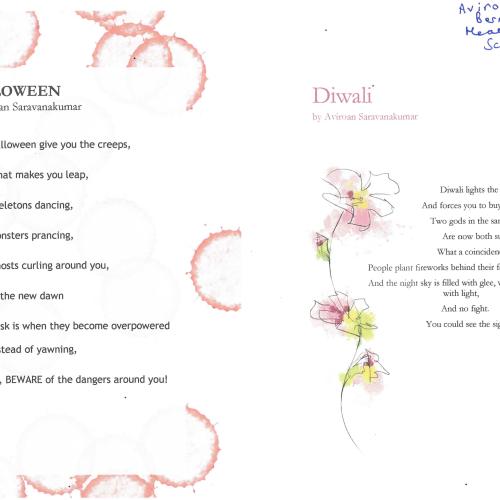 LOWEEN
an Saravanakumar
lloween give you the creeps,
hat makes you leap,
eletons dancing,
onsters prancing,
hosts curling around you,
the new dawn
sk is when they become overpowered
stead of yawning,
, BEWARE of the dangers around you!
Aviro
Ber
Mea
Sc
Diwali
by Aviroan Saravanakumar
Diwali lights the
And forces you to buy
Two gods in the sam
Are now both su
What a coincidenc
People plant fireworks behind their f
And the night sky is filled with glee, w
with light,
And no fight.
You could see the sig